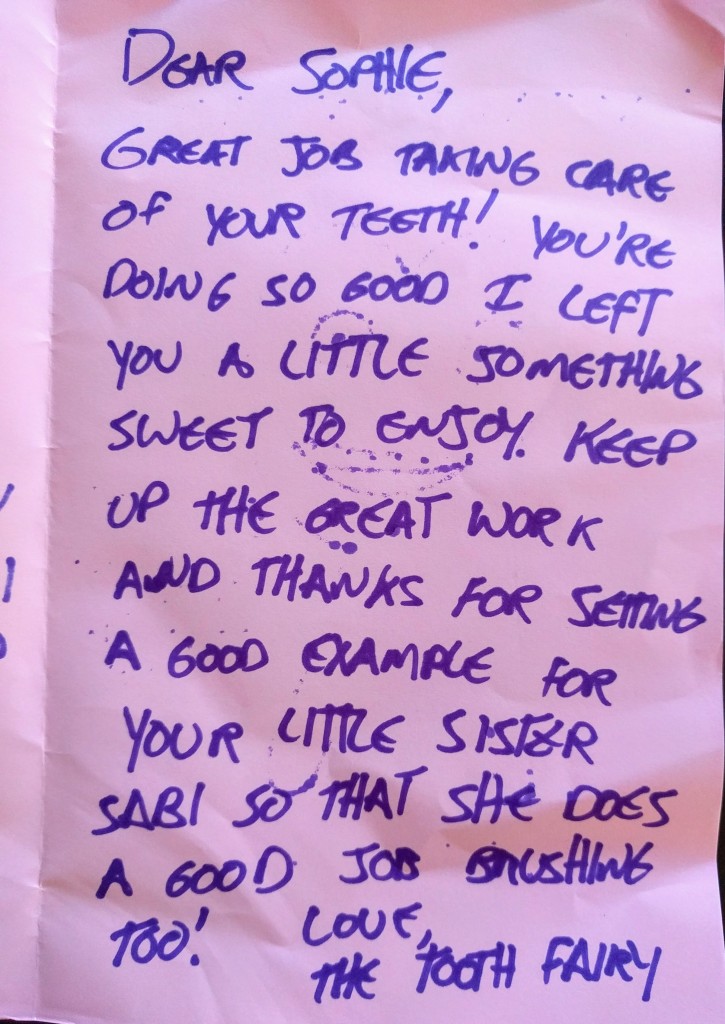 DEAR SOPHIE,
GREAT JOB TAKING CARE
OF YOUR TEETH! YOU'RE
DOING SO GOOD I LEFT
YOU A LITTLE SOMETHING
SWEET TO ENJOY. KEEP
UP THE GREAT WORK
AND THANKS FOR SETTING
A GOOD EXAMPLE FOR
YOUR LITTLE SISTER
SABI SO THAT SHE DOES
A GOOD JOB BRUSHING
TOO! LOVE,
THE TOOTH FAIRY